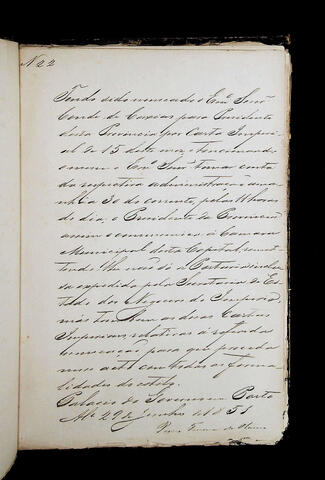 N 22
Tendo sido nomeado o Exmº. Senr.
Conde de Caxias para Presidente
desta Provincia por Carta Imperi-
al de 15 deste mez, e tencionando
o mesmo Exmº. Senr. tomar conta
da respectiva administração ama-
nhã 30 do corrente, pelas 11 horas
do dia, o Presidente da Provincia
assim o communica á Camara
Municipal desta Capital, remet-
tendo lhe não só a Portaria inclu
sa expedida pela Secretaria de Es-
tado dos Negocios do Imperio
mas tambem as duas Cartas
Imperiaes, relativas á referida
nomeação para que proceda
nesse acto com todas as forma-
lidades do estylo.
Palacio do Governo em Porto
Ale 29 de Junho de 1851
Pedro